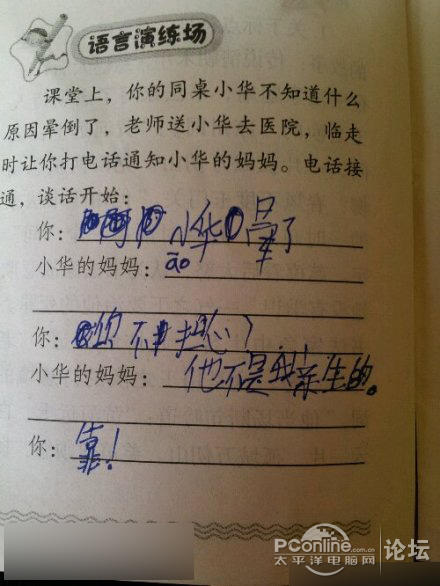 语言演练场
课堂上，你的同桌小华不知道什么
原因晕倒了，老师送小华去医院，临走
时让你打电话通知小华的妈妈。电话接
通，谈话开始：
你：小华晕了
小华的妈妈：āo
你：你不担心？
小华的妈妈：他不是我亲生的。
你：靠！
PConline.com.cn
太平洋电脑网
论坛